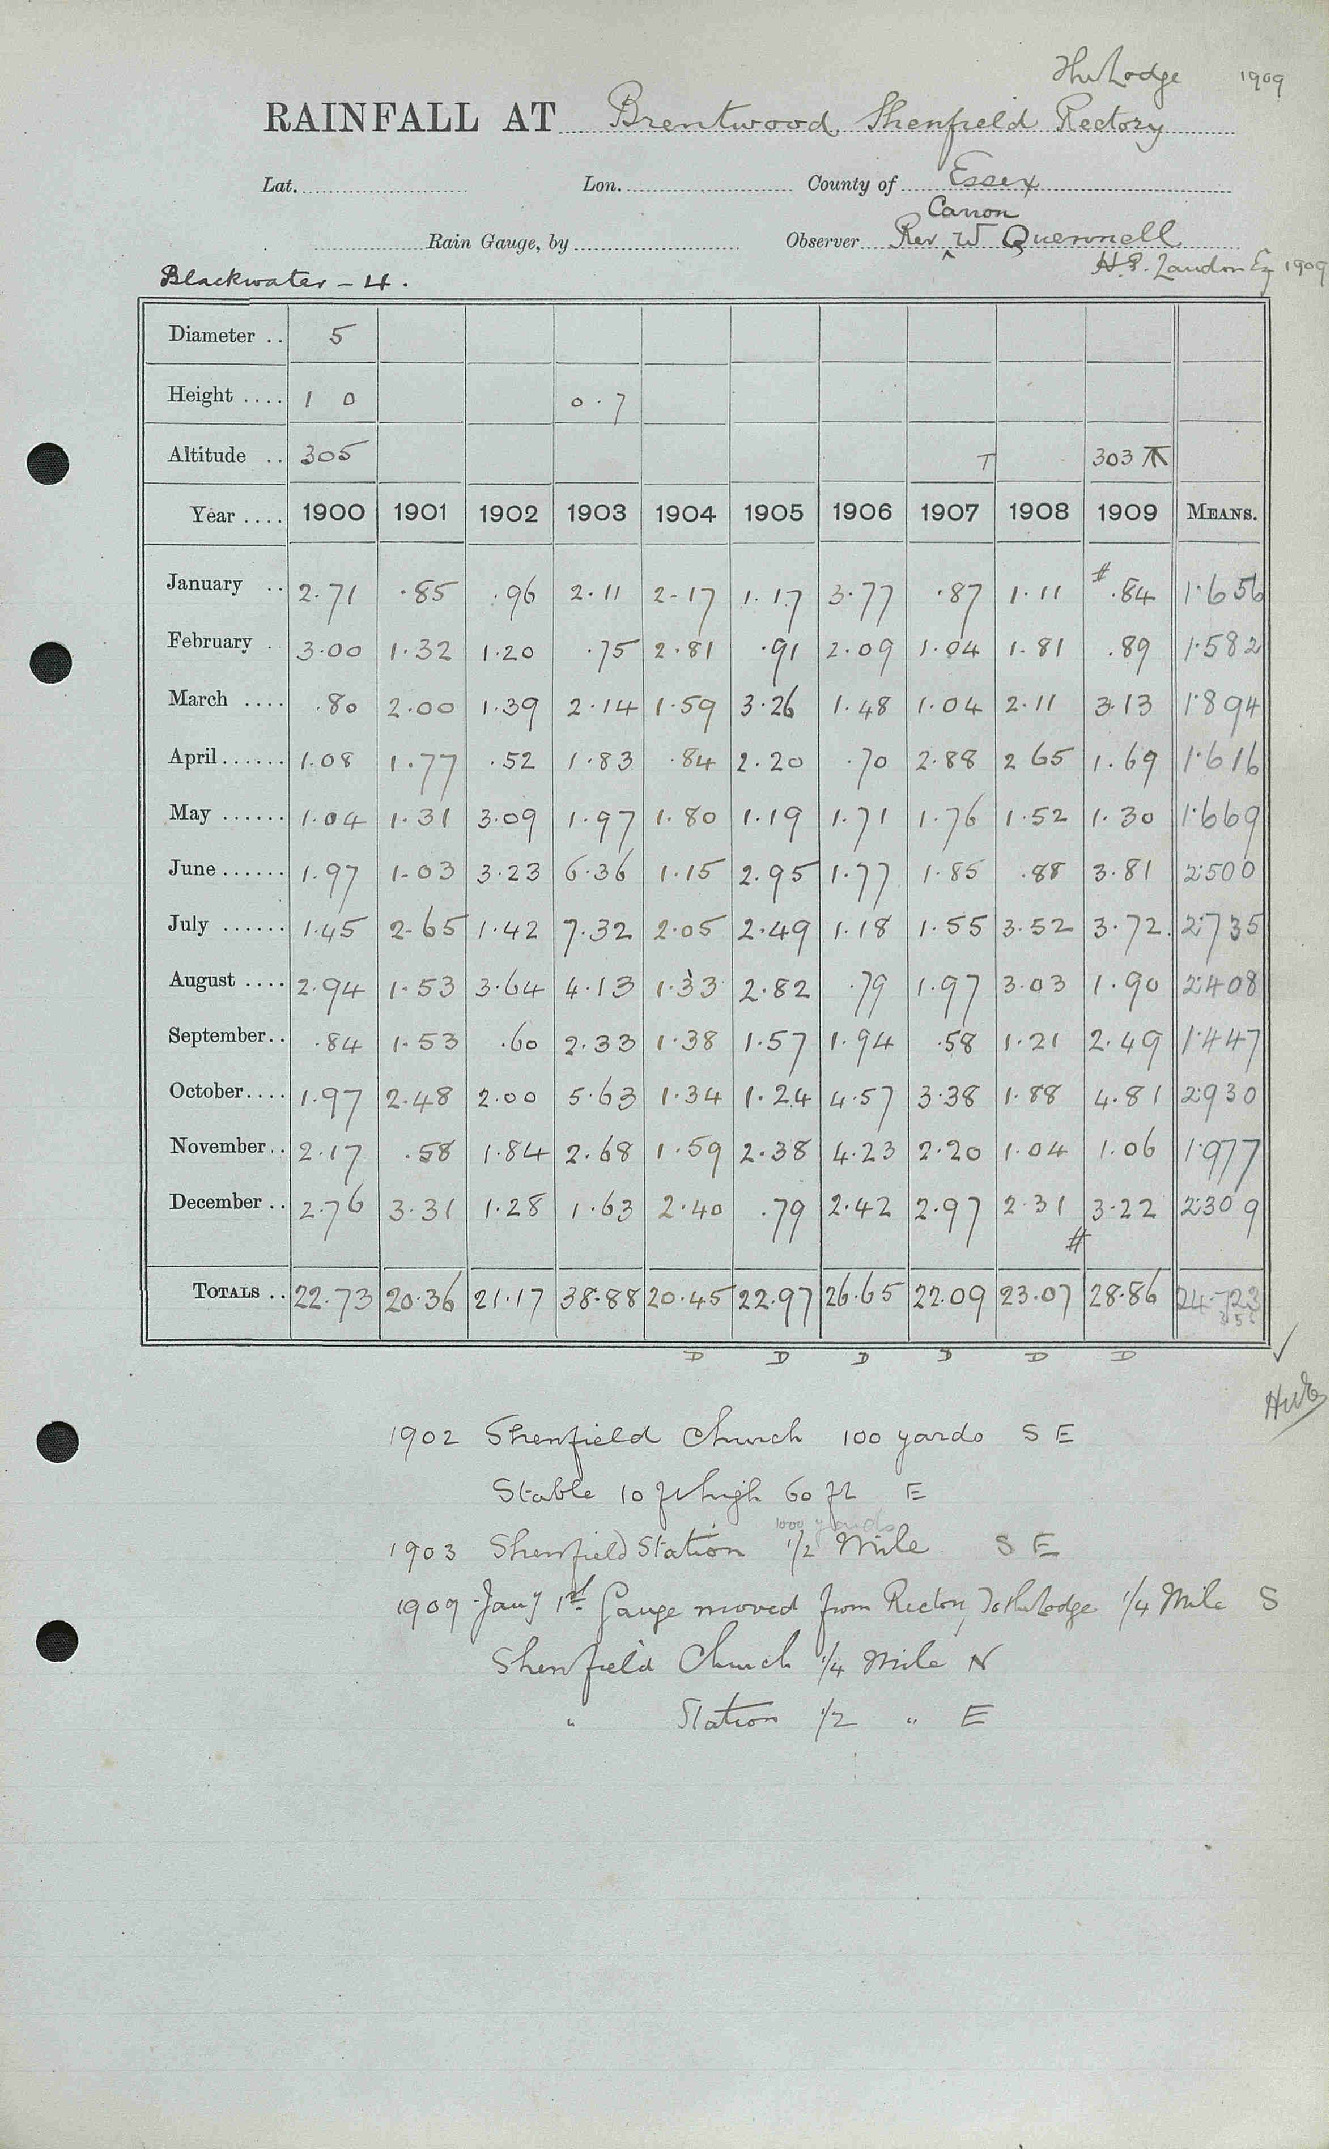 The Lodge 1909
RAINFALL AT Brentwood Shenfield Rectory
Lat. Lon. County of Essex
Canon
Rain Gauge, by Observer Rev ^ W Quennell
Blackwater - 4. H.P. Landon Esq 1909
Diameter .. 5
Height .... 1 0 0.7
Altitude .. 305 T 303
Year .... 1900 1901 1902 1903 1904 1905 1906 1907 1908 1909 MEANS.
January .. 2.71 .85 .96 2.11 2.17 1.17 3.77 .87 1.11 # .84 1.656
February .. 3.00 1.32 1.20 .75 2.81 .91 2.09 1.04 1.81 .89 1.582
March .... .80 2.00 1.39 2.14 1.59 3.26 1.48 1.04 2.11 3.13 1.894
April ...... 1.08 1.77 .52 1.83 .84 2.20 .70 2.88 2.65 1.69 1.616
May ...... 1.04 1.31 3.09 1.97 1.80 1.19 1.71 1.76 1.52 1.30 1.669
June ...... 1.97 1.03 3.23 6.36 1.15 2.95 1.77 1.85 .88 3.81 2.500
July ...... 1.45 2.65 1.42 7.32 2.05 2.49 1.18 1.55 3.52 3.72 2.735
August .... 2.94 1.53 3.64 4.13 1.33 2.82 .79 1.97 3.03 1.90 2.408
September.. .84 1.53 .60 2.33 1.38 1.57 1.94 .58 1.21 2.49 1.447
October.... 1.97 2.48 2.00 5.63 1.34 1.24 4.57 3.38 1.88 4.81 2.930
November.. 2.17 .58 1.84 2.68 1.59 2.38 4.23 2.20 1.04 1.06 1.977
December .. 2.76 3.31 1.28 1.63 2.40 .79 2.42 2.97 2.31 3.22 2.309
#
TOTALS .. 22.73 20.36 21.17 38.88 20.45 22.97 26.65 22.09 23.07 28.86 24.723
D D D D D D
1902 Shenfield Church 100 yards S E
Stable 10 ft high 60 ft E
1000 yards
1903 Shenfield Station 1/2 Mile S E
1909 Jany 1st Gauge moved from Rectory to The Lodge 1/4 Mile S
Shenfield Church 1/4 Mile N
" Station 1/2 " E